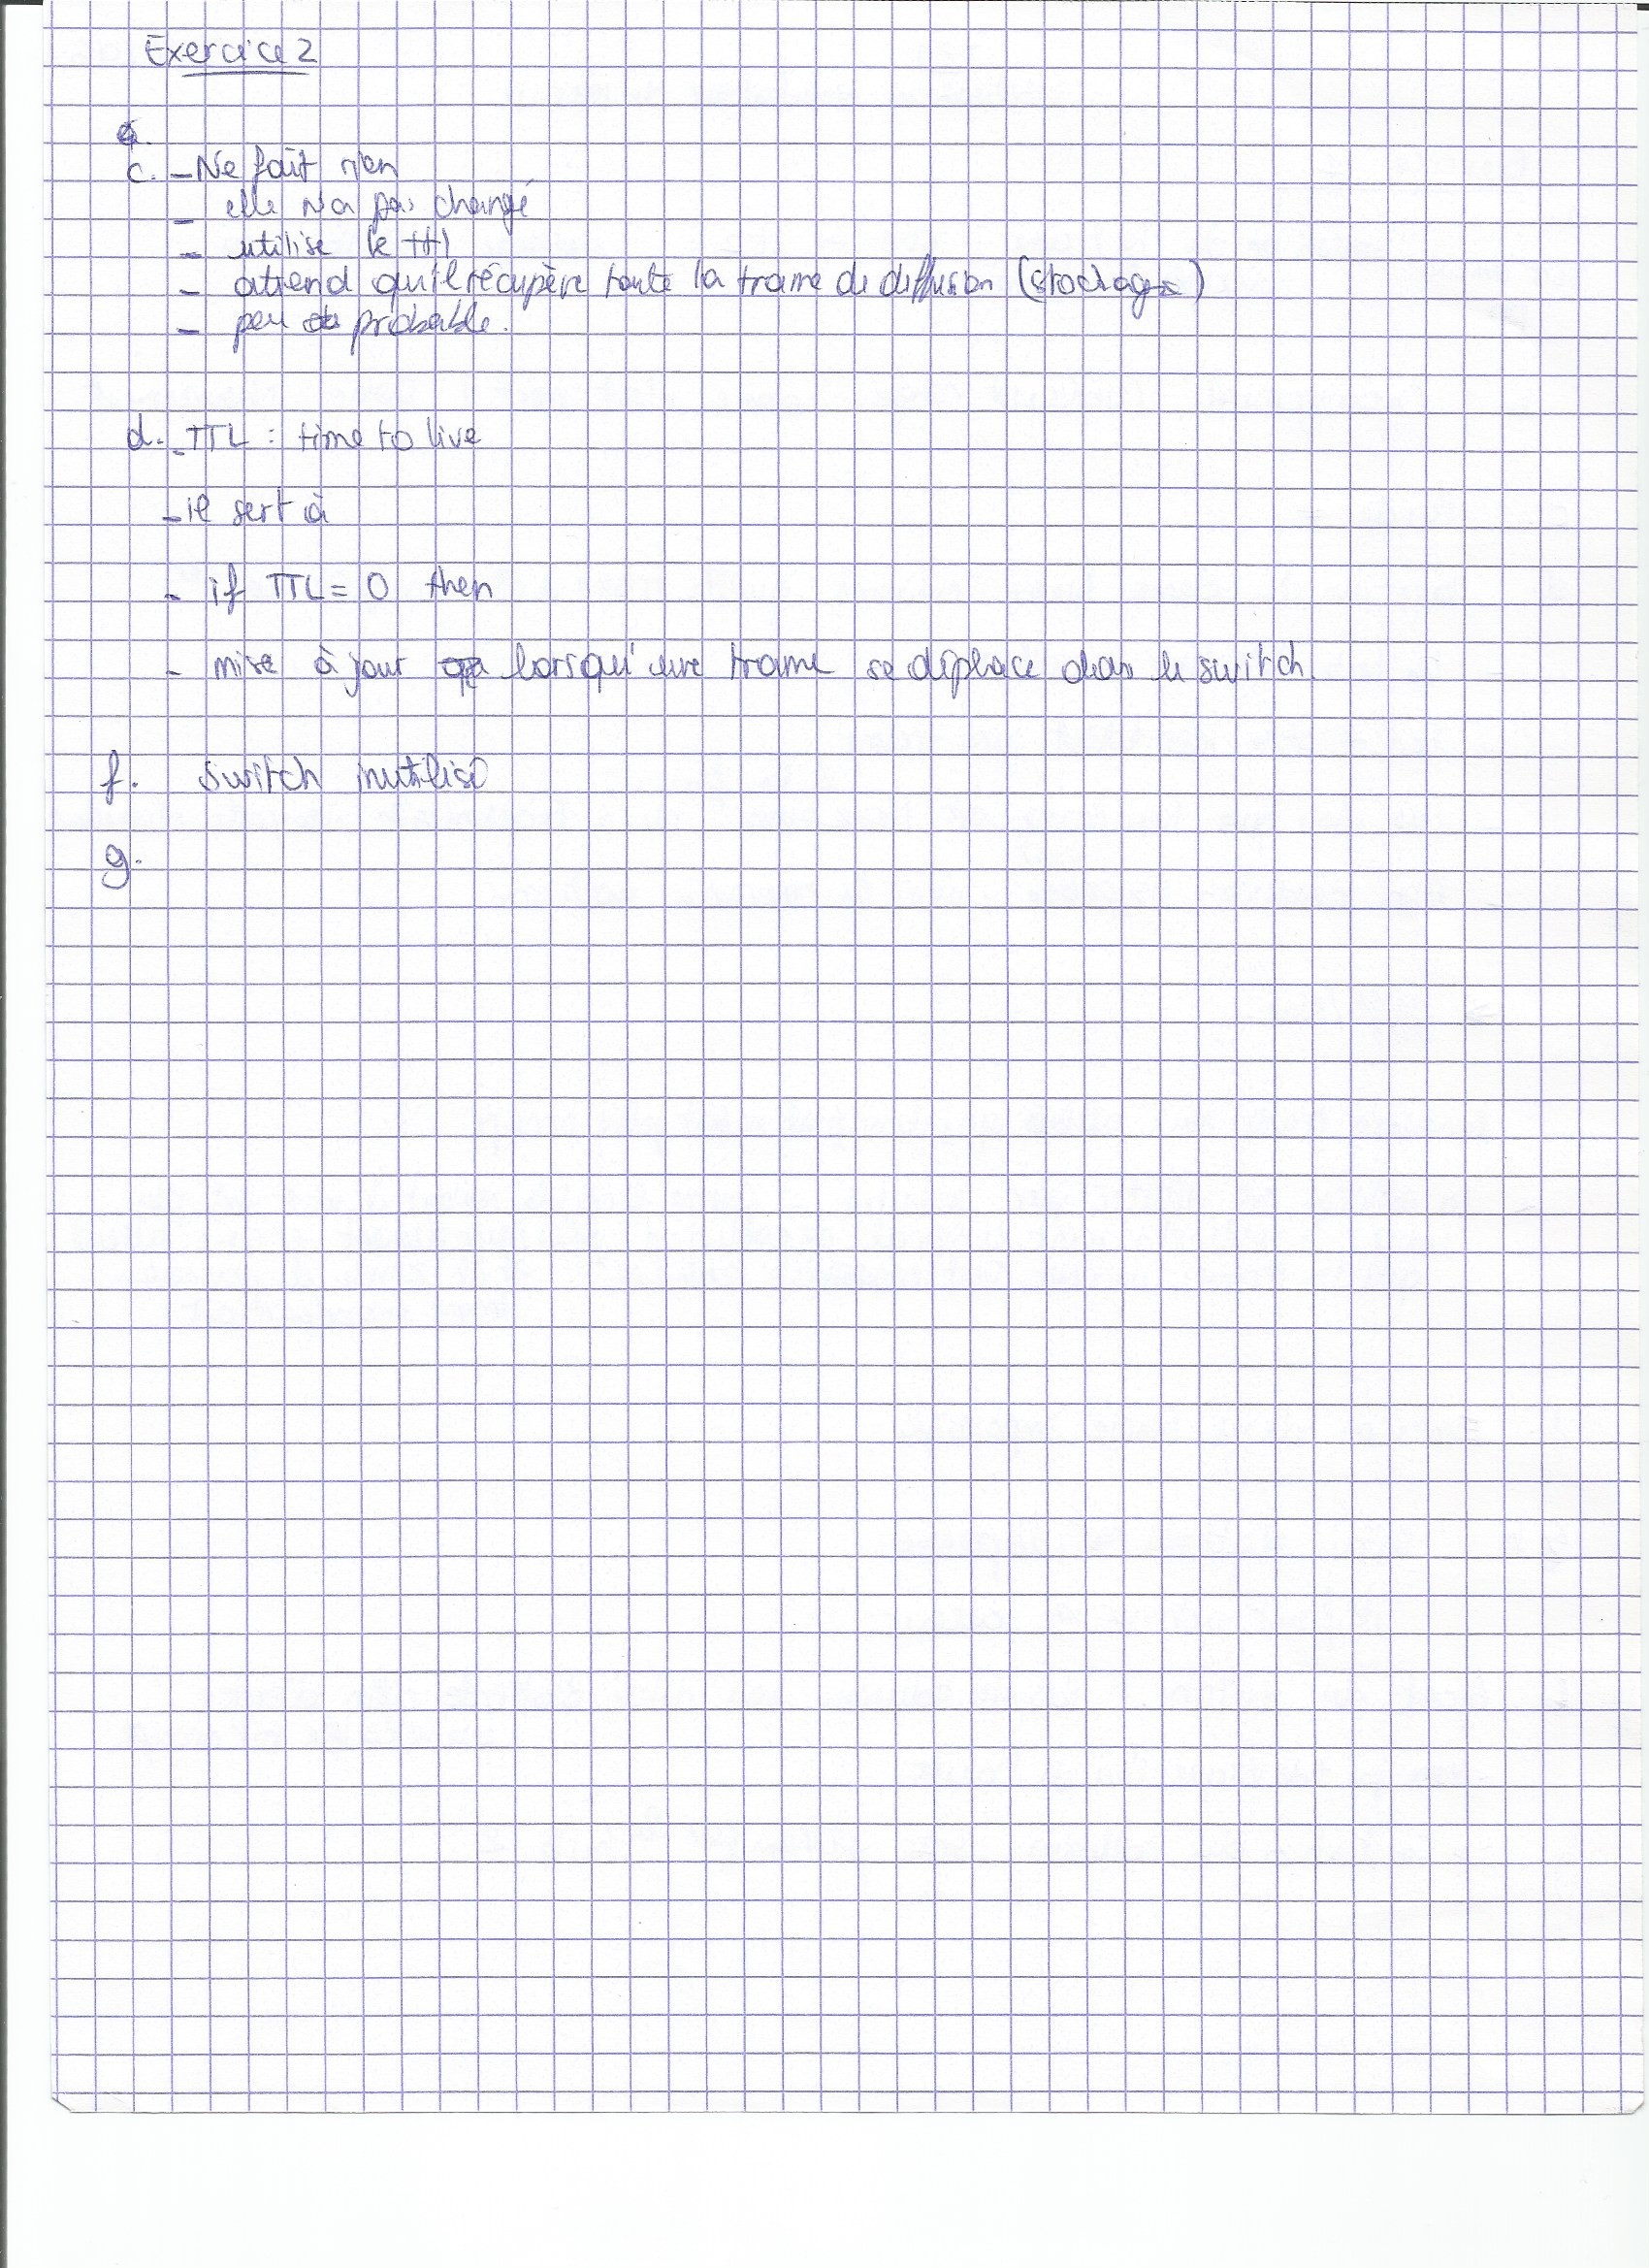 Exercice 2
c. - Ne fait rien
- elle n'a pas changé
- utilise le ttl
- attend qu'il récupère toute la trame de diffusion (stockage)
- peu probable.
d. - TTL : time to live
- il sert à
- if TTL = 0 then
- mise à jour lorsqu'une trame se déplace dans le switch.
f. switch inutilisé
g.